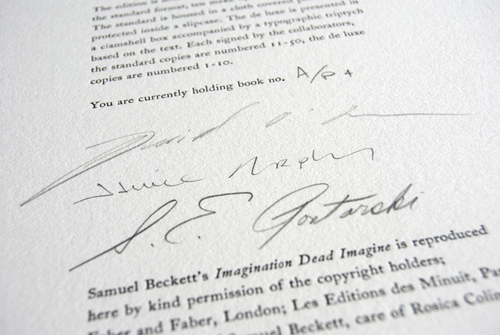 The edition is
the standard format, ten
The standard is housed in a cloth covered
protected inside a slipcase. The de luxe is presented in
a clamshell box accompanied by a typographic triptych
based on the text. Each signed by the collaborators,
the standard copies are numbered 11-50, the de luxe
copies are numbered 1-10.
You are currently holding book no. A/P 4
David
S. E. Gontarski
Samuel Beckett's Imagination Dead Imagine is reproduced
here by kind permission of the copyright holders;
Faber and Faber, London; Les Editions des Minuit,
Samuel Beckett, care of Rosica